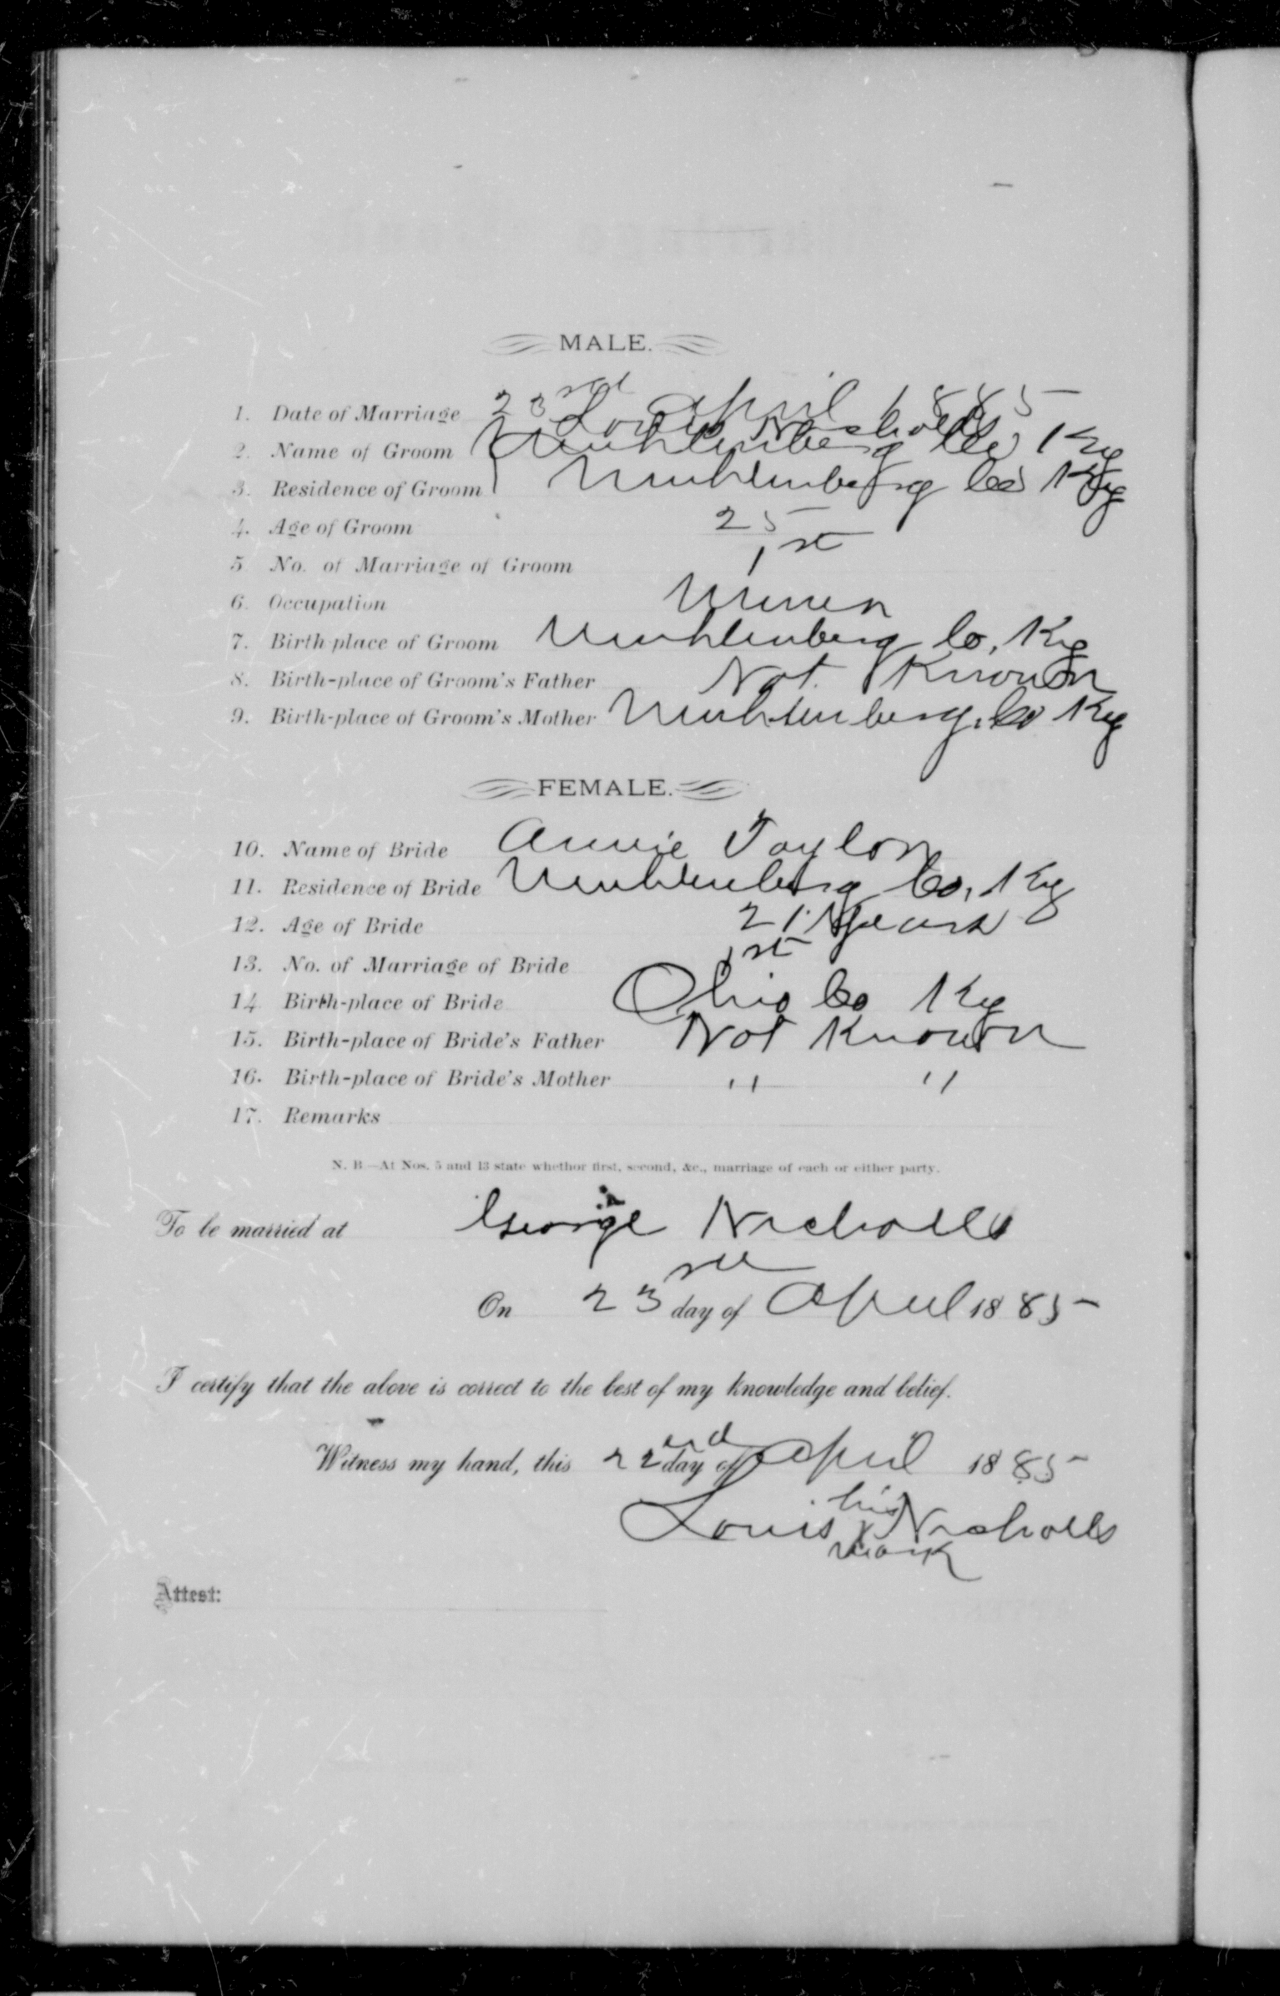 MALE.
1. Date of Marriage 23rd April 1885
2. Name of Groom Louis Nicholls Muhlenberg Co Ky
3. Residence of Groom Muhlenberg Co Ky
4. Age of Groom 25
5 No. of Marriage of Groom 1st
6. Occupation Miner
7. Birth place of Groom Muhlenberg Co, Ky
8. Birth-place of Groom's Father Not Known
9. Birth-place of Groom's Mother Muhlenberg, Co Ky
FEMALE.
10. Name of Bride Annie Taylor
11. Residence of Bride Muhlenberg Co, Ky
12. Age of Bride 21 Years
13. No. of Marriage of Bride 1st
14 Birth-place of Bride Ohio Co Ky
15. Birth-place of Bride's Father Not Known
16. Birth-place of Bride's Mother " "
17. Remarks
N. B.—At Nos. 5 and 13 state whethor first, second, &c., marriage of each or either party.
To be married at George Nicholls
On 23rd day of April 1885
I certify that the above is correct to the best of my knowledge and belief.
Witness my hand, this 22nd day of April 1885
his
Louis X Nicholls
mark
Attest: